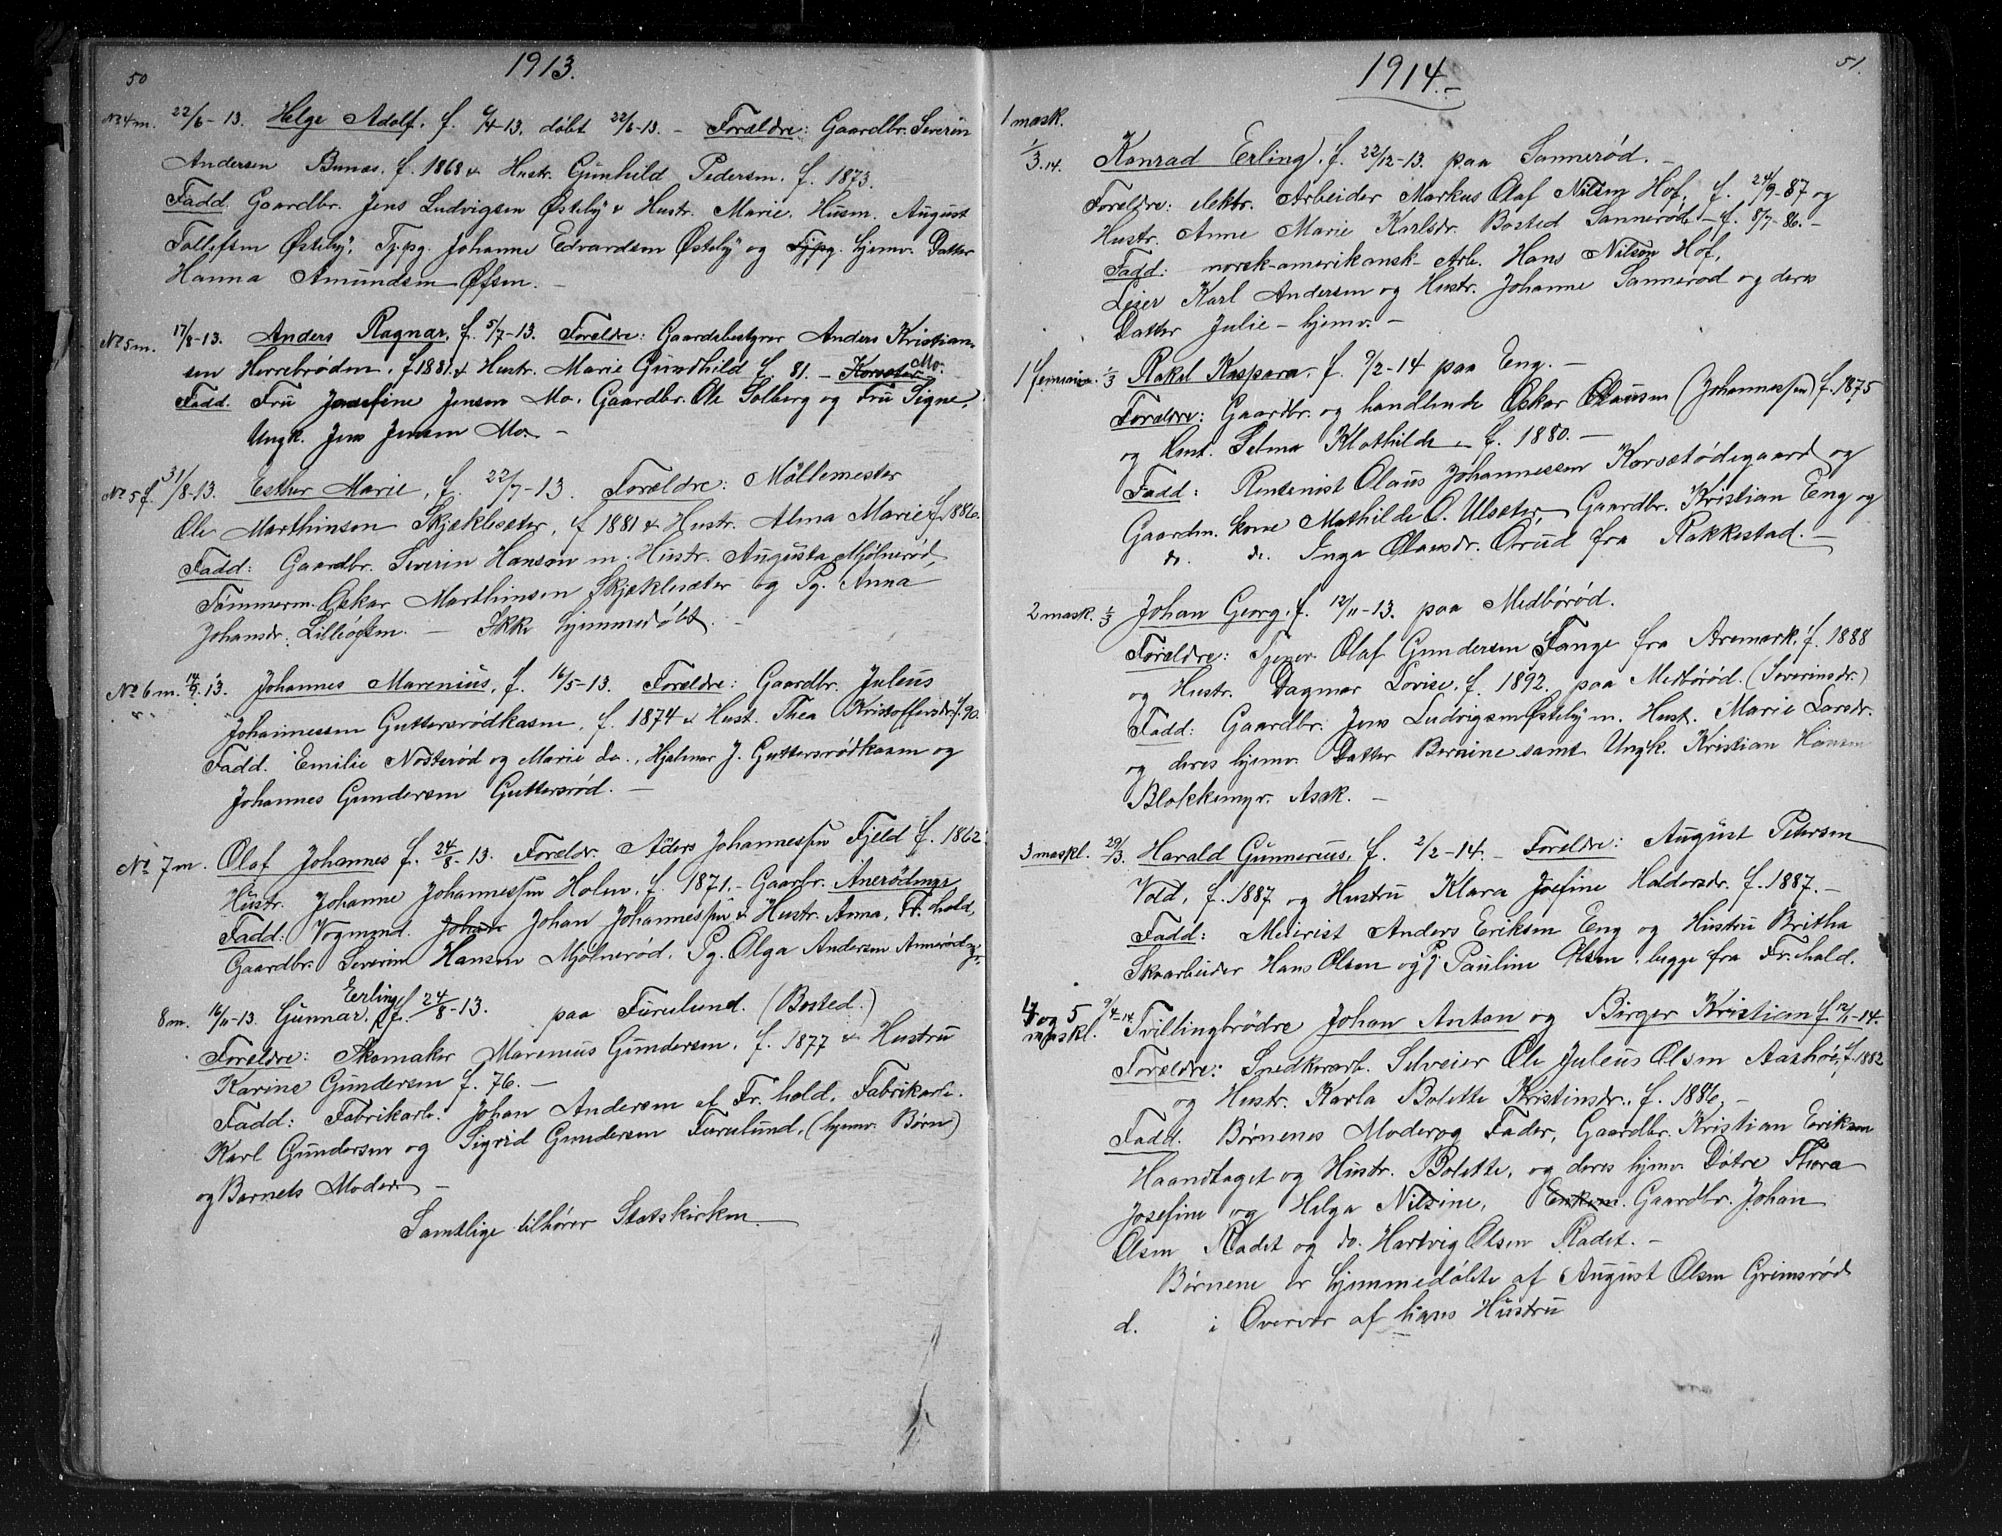 50
1913.
No 4 m. 22/6-13. Helge Adolf, f. 6/4-13. døbt 22/6-13. - Forældre: Gaardbr. Severin
Andersen Bunæs, f. 1868 & Hustr. Gunhild Pedersen. f. 1873.
Fadd. Gaardbr. Jens Ludvigsen Østeby & Hustr. Marie. Husm. August
Tollefsen Østeby, Tj.pg. Johanne Edvardsen Østeby og Tjpg. hjemv. Datter
Hanna Amundsen
No 5 m. 17/8-13. Anders Ragnar, f. 5/7-13. Foreldre: Gaardsbestyrer Anders Kristian-
sen Herrebrøden, f. 1881 & Hustr. Marie Gundhild f. 81. - Korsæter Mo.
Fadd. Fru Josefine Jensen Mo, Gaardbr. Ole Solberg og Fru Signe,
Ungk. Jens Jensen Mo. -
No 5 f. 31/8-13. Esther Marie, f. 22/7-13. Foreldre: Møllemester
Ole Marthinsen Skjeklesæter, f. 1881 & Hustr. Alma Marie f. 1886.
Fadd: Gaardbr. Severin Hansen m. Hustr. Augusta Mjølnerød,
Tømmerm. Oskar Marthinsen Skjeklesæter og Pg. Anna
Johansdr. - Ikke hjemmedøbt
No 6 m. 14/9. 13. Johannes Marenius, f. 16/5-13. Foreldre: Gaardbr. Juleus
Johannessen Guttersrødkasen, f. 1874 & Hust. Thea Kristoffersdr. f. 90.
Fadd. Emilie Nodterød og Marie do., Hjalmar J. Guttersrødkasen og
Johannes Gundersen Guttersrød. -
No 7 m. Olaf Johannes f. 24/8-13. Foreldr. Aders Johannessen Fjeld f. 1862.
Hustr. Johanne Johannessen Holm, f. 1871. - Gaarbr. Anerødinge
Fadd: Vogmnd. Johan Johan Johannessen & Hustr. Anna, Fr. hald,
Gaardbr. Severin Hansen Mjølnerød. Pg. Olga Andersen Annerødge.
8 m. 16/11-13. Gunnar Eerling, f. 24/8-13. paa Furulund. (Bosted.)
Foreldre: Skomaker Marenius Gundersen, f. 1877 & Hustru
Karine Gundersen f. 76. -
Fadd: Fabrikarb. Johan Andersen af Fr. hald, Fabrikarb.
Karl Gundersen og Sigrid Gundersen Furulund, (hjemv. Børn)
og Barnets Moder -
Samtlige tilhører Statskirken.
51.
1914. -
1 mask.
1/3. 14. Konrad Erling, f. 22/12-13. paa Sannerød. -
Foreldre: elektr. Arbeider Markus Olaf Nilsen Hof, f. 24/9-87 og
Hustr. Anne Marie Karlsdr. Bosted Sannerød - f. 8/7-86. -
Fadd: norsk-amerikansk Arb. Hans Nilson Hof,
Leier Karl Andersen og Hustr. Johanne Sannerød og deres
Datter Julie - hjemv. -
1 feminin. 1/3 Rakel Kaspara, f. 9/2-14 paa Eng. -
Foreldre: Gaardbr. og handlende Oskar Olausen (Johannessen) f. 1875
og Hust. Selma Klothilde - f. 1880. -
Fadd: Rentenist Olaus Johannessen Korsetødegaard og
Gaardm. kone Mathilde O. Ulseter, Gaardbr. Kristian Eng og
do. do. Inga Olausdr. Orud fra Rakkestad. -
2 mask. 1/3 Johan Georg, f. 12/11-13. paa Medbörød.
Foreldre: Tjener Olaf Gundersen Tange fra Aremark, f. 1888
og Hustr. Dagmar Lovise, f. 1892. paa Medbörød. (Severinsdr.)
Fadd: Gaardbr. Jens Ludvigsen Østeby m. Hust. Marie Larsdr.
og deres hjemv. Datter Bernine samt Ungk. Kristian Hansen
Blokkemyr. Asak. -
3 maskl. 29/3. Harald Gunnerius, f. 2/2-14. - Foreldre: August Petersen
Vold, f. 1887 og Hustru Klara Josefine Haldorsdr. f. 1887. -
Fadd: Meierist Anders Eriksen Eng og Hustru Britha
Skoarbeider Hans Olsen og Pg. Pauline Olsen, begge fra Fr. hald.
4 og 5 maskl. 9/4-14. Tvillingbrødre Johan Anton og Birger Kristian f. 12/1-14.
Foreldre: Snedkerarb. Selveier Ole Juleus Olsen Aashøi, f. 1882
og Hustr. Karla Bolette Kristinsdr. f. 1886. -
Fadd. Børnenes Moder og Fader, Gaardbr. Kristian Eriksen
Haandtaget og Hustr. Bolette, og deres hjemv. Døtre Thora
Josefine og Helga Nilsine, Enkem. Gaardbr. Johan
Olsen Radet og do. Hartvig Olsen Radet. -
Børnene er hjemmedøbte af August Olsen Grimsrød
d. i Overvær af hans Hustru